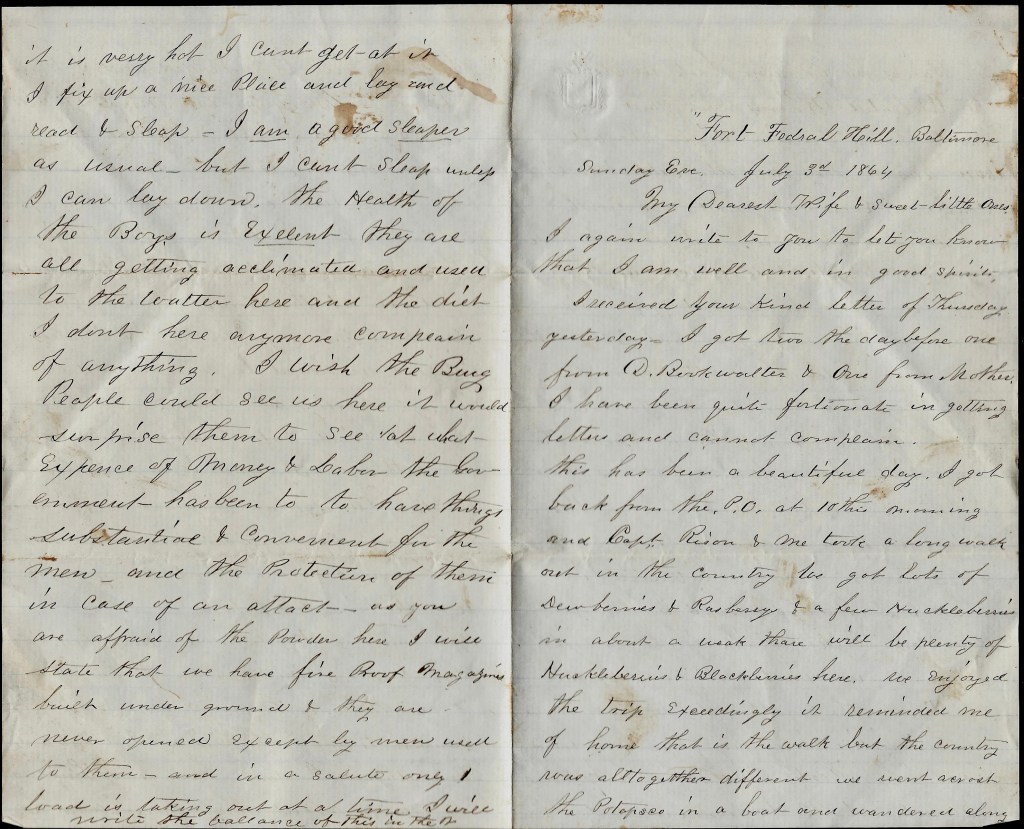 "Fort Fedral Hill. Baltimore
Sunday Eve. July 3rd 1864
My Dearest Wife & Sweet little Ones.
I again write to you to let you know
that I am well and in good spirits,
I received your kind letter of Thursday
yesterday - I got two the day before one
from D. Bookwalter & One from Mother.
I have been quite fortionate in getting
letters and cannot complain.
this has been a beautiful day. I got
back from the P.O. at 10 this morning
and Capt. Rison & me took a long walk
out in the country We got lots of
Dewberries & Rasberey & a few Huckleberries
in about a weak thare will be plenty of
Huskleberries & Blackberries here. we Enjoyed
the trip Exceedingly it reminded me
of home that is the walk but the country
was alltogether different we went acrost
the Potapsco in a boat and wandered along
it is verry hot I cant get at it
I fix up a nice Place and lay and
read & Sleap - I am a good Sleaper
as usual - but I cant Sleap unless
I can lay down. the Health of
the Boys is Exelent they are
all getting acclimated and used
to the Watter here and the diet
I dont here anymore complain
of anything. I wish the Burg
People could see us here it would
surprise them to see at what
Expence of Money & Labor the Gov-
ernment has been to to have things
substantial & Convenient for the
men - and the Protection of them
in case of an attact - as you
are affraid of the Powder here I will
state that we have fire Proof Magazines
built under ground & they are
never opened Except by men used
to them - and in a salute only 1
load is taking out at a time I will
write the ballance of this in the